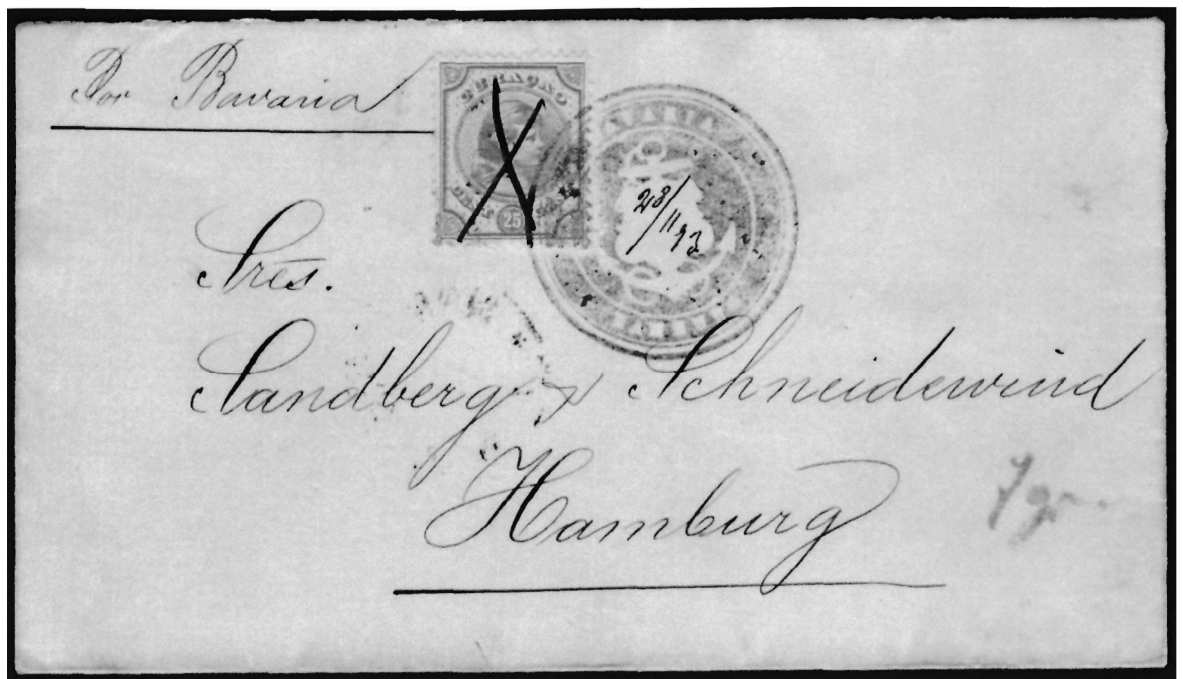 Por Bavaria
25
28/11 93
Sres.
Sandberg & Schneidewind
Hamburg
7 gr.